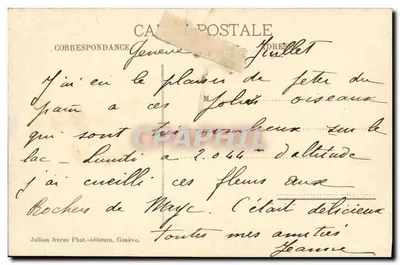 CARTE POSTALE
CORRESPONDANCE
Genève Juillet
J'ai eu le plaisir de jeter du
pain a ces Jolis oiseaux
qui sont très nombreux sur le
lac - Lundi a 2.044 m d'altitude
j'ai cueilli ces fleurs aux
Rochers de Naye. C'était délicieux
toutes mes amitiés
Jeanne
Jullien frères Phot.-éditeurs, Genève.